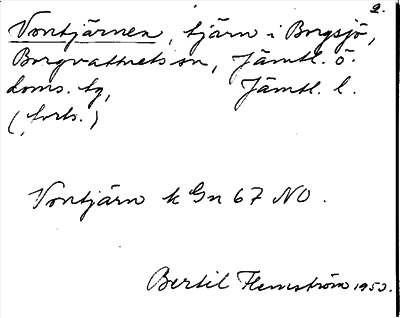 2.
Vontjärnen, tjärn i Borgsjö,
Borgvattnets sn, Jämtl. ö.
doms. tg, Jämtl. l.
(forts.)
Vontjärn k Gn 67 NO.
Bertil Flemström 1953.